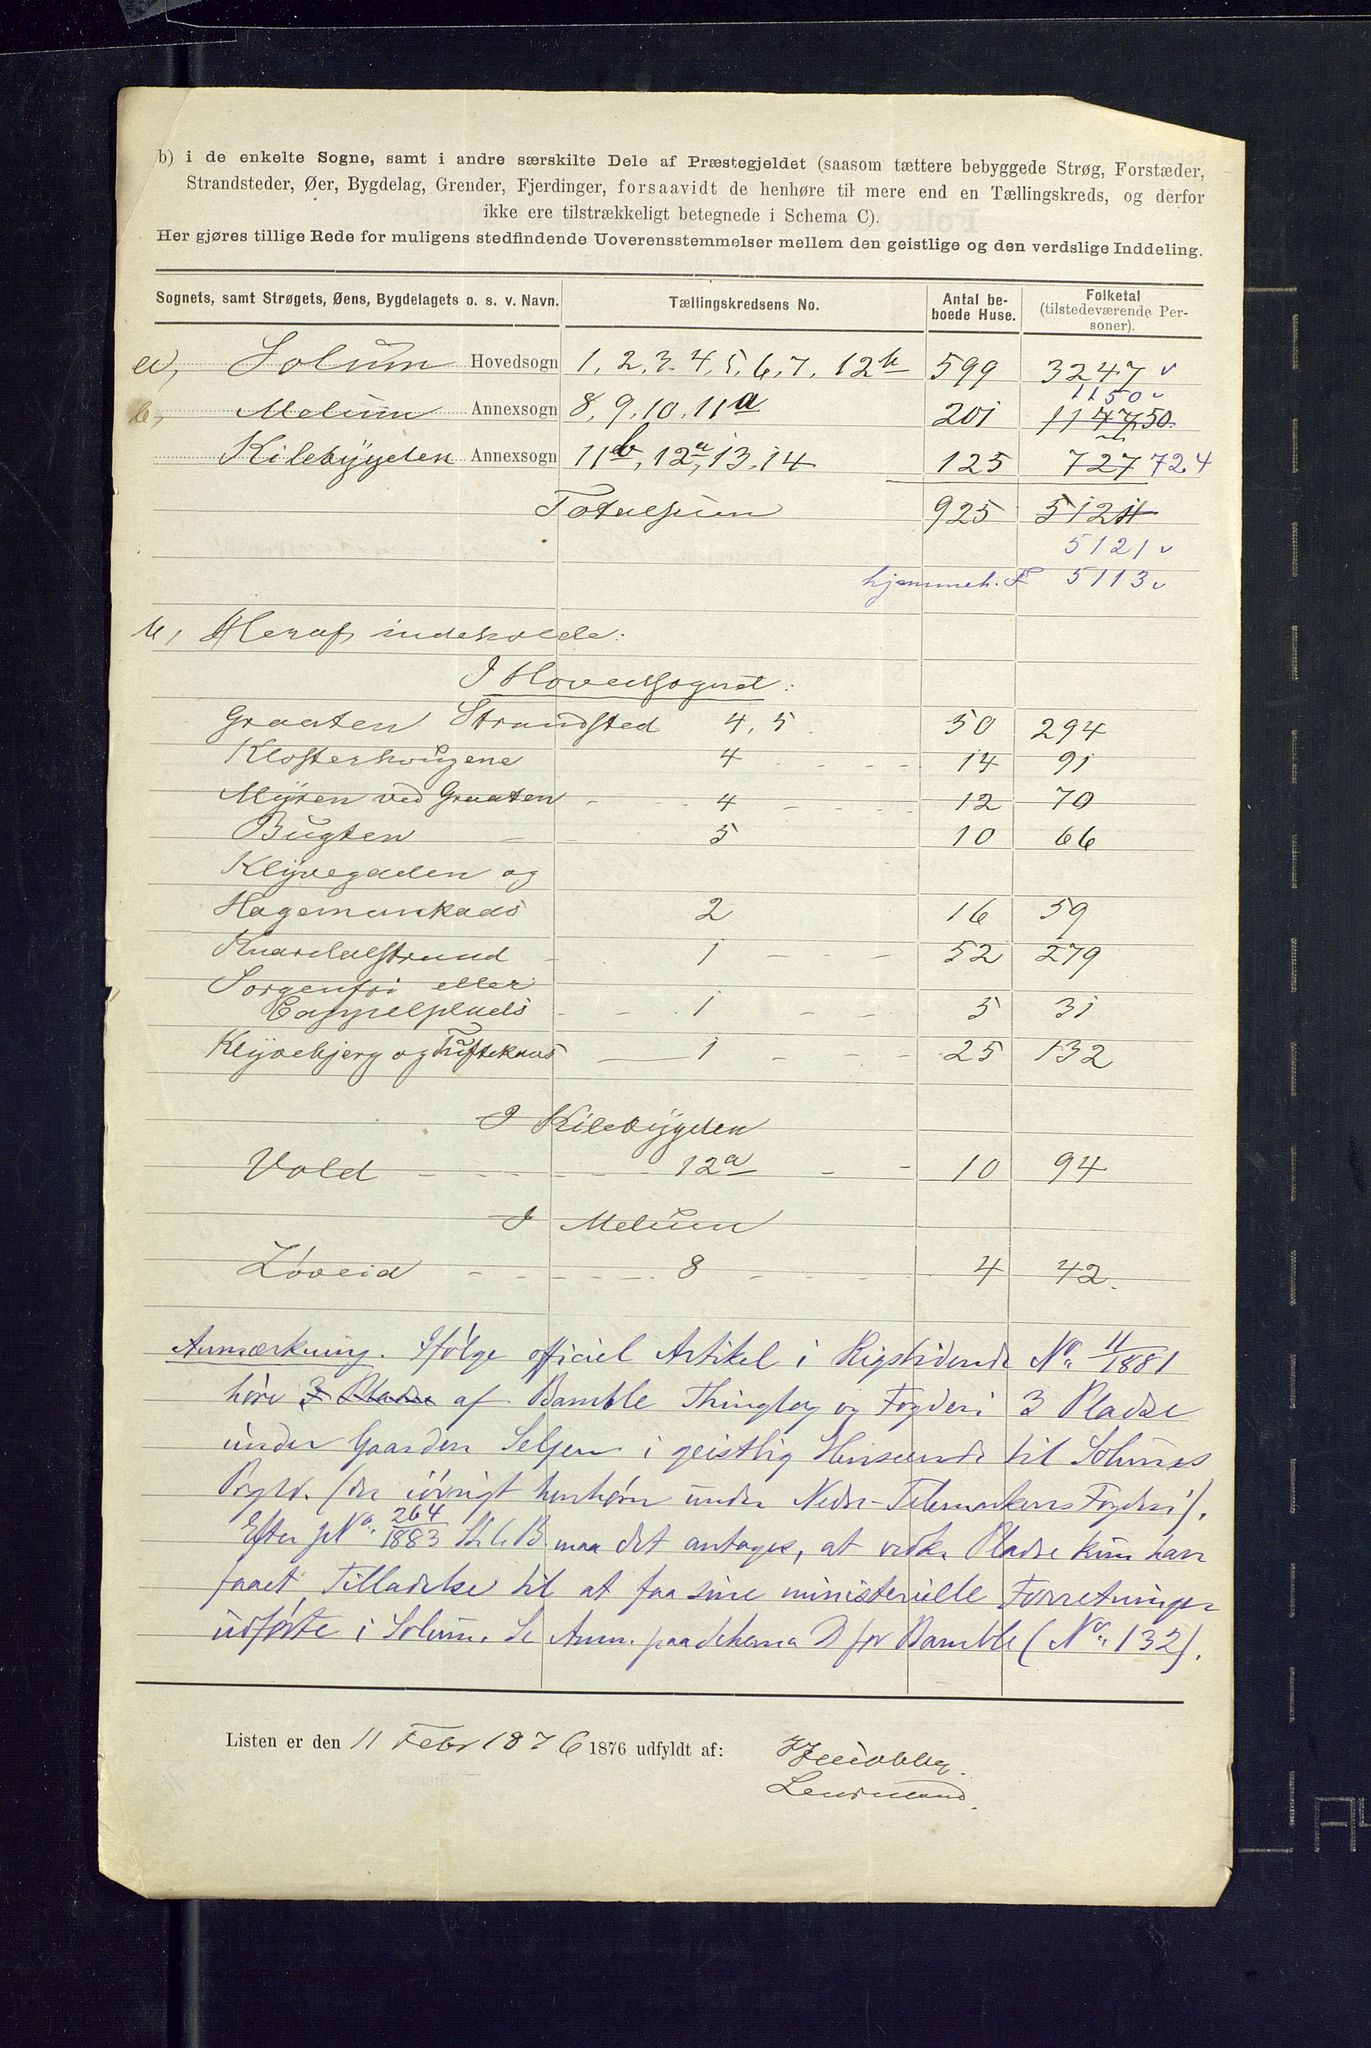 b) i de enkelte Sogne, samt i andre særskilte Dele af Præstegjeldet (saasom tættere bebyggede Strøg, Forstæder,
Strandsteder, Øer, Bygdelag, Grender, Fjerdinger, forsaavidt de henhøre til mere end en Tællingskreds, og derfor
ikke ere tilstrækkeligt betegnede i Schema C).
Her gjøres tillige Rede for muligens stedfindende Uoverensstemmelser mellem den geistlige og den verdslige Inddeling.
Sognets, samt Strøgets, Øens, Bygdelagets o. s. v. Navn. Tællingskredsens No. Antal beboede Huse. Folketal (tilstedeværende Personer).
a, Solum Hovedsogn 1, 2, 3. 4, 5, 6, 7, 12b 599 3247 v
1150 v
b, Melum Annexsogn 8, 9, 10, 11a 201 1147 50.
Kilebygden Annexsogn 11b, 12a, 13, 14 125 727 724
Totalsum 925 5121
5121 v
hjemmeh. F 5113 v
b, Heraf indeholde:
I Hovedsognet:
Graaten Strandsted 4, 5 50 294
Klosterhougene 4 14 91
Myren ved Graaten 4 12 70
Bugten 5 10 66
Klyvegaden og
Hagemankads 2 16 59
Knardalstrand 1 52 279
Sorgenfri eller
Cappelplads 1 5 31
Klyvebjerg og Tuftekaas 1 25 132
I Kilebygden
Vold 12a 10 94
I Melum
Løveid 8 4 42.
Anmærkning. Ifølge officiel Artikel i Rigstidende No. 11/1881
høre 3 Pladse af Bamble Thinglag og Fogderi 3 Pladse
under Gaarden Seljen i geistlig Henseende til Solums
Prgld. (der iøvrigt henhører under Nedre-Telemarkens Fogderi).
Efter jNo. 264/1883 maa det antages, at Pladse kun have
faaet Tilladelse til at faa sine ministerielle Forretninger
udførte i Solum. Se Anm. paa Schema D for Bamble (No. 132).
Listen er den 11 Febr 1876 1876 udfyldt af:
Lensmand.